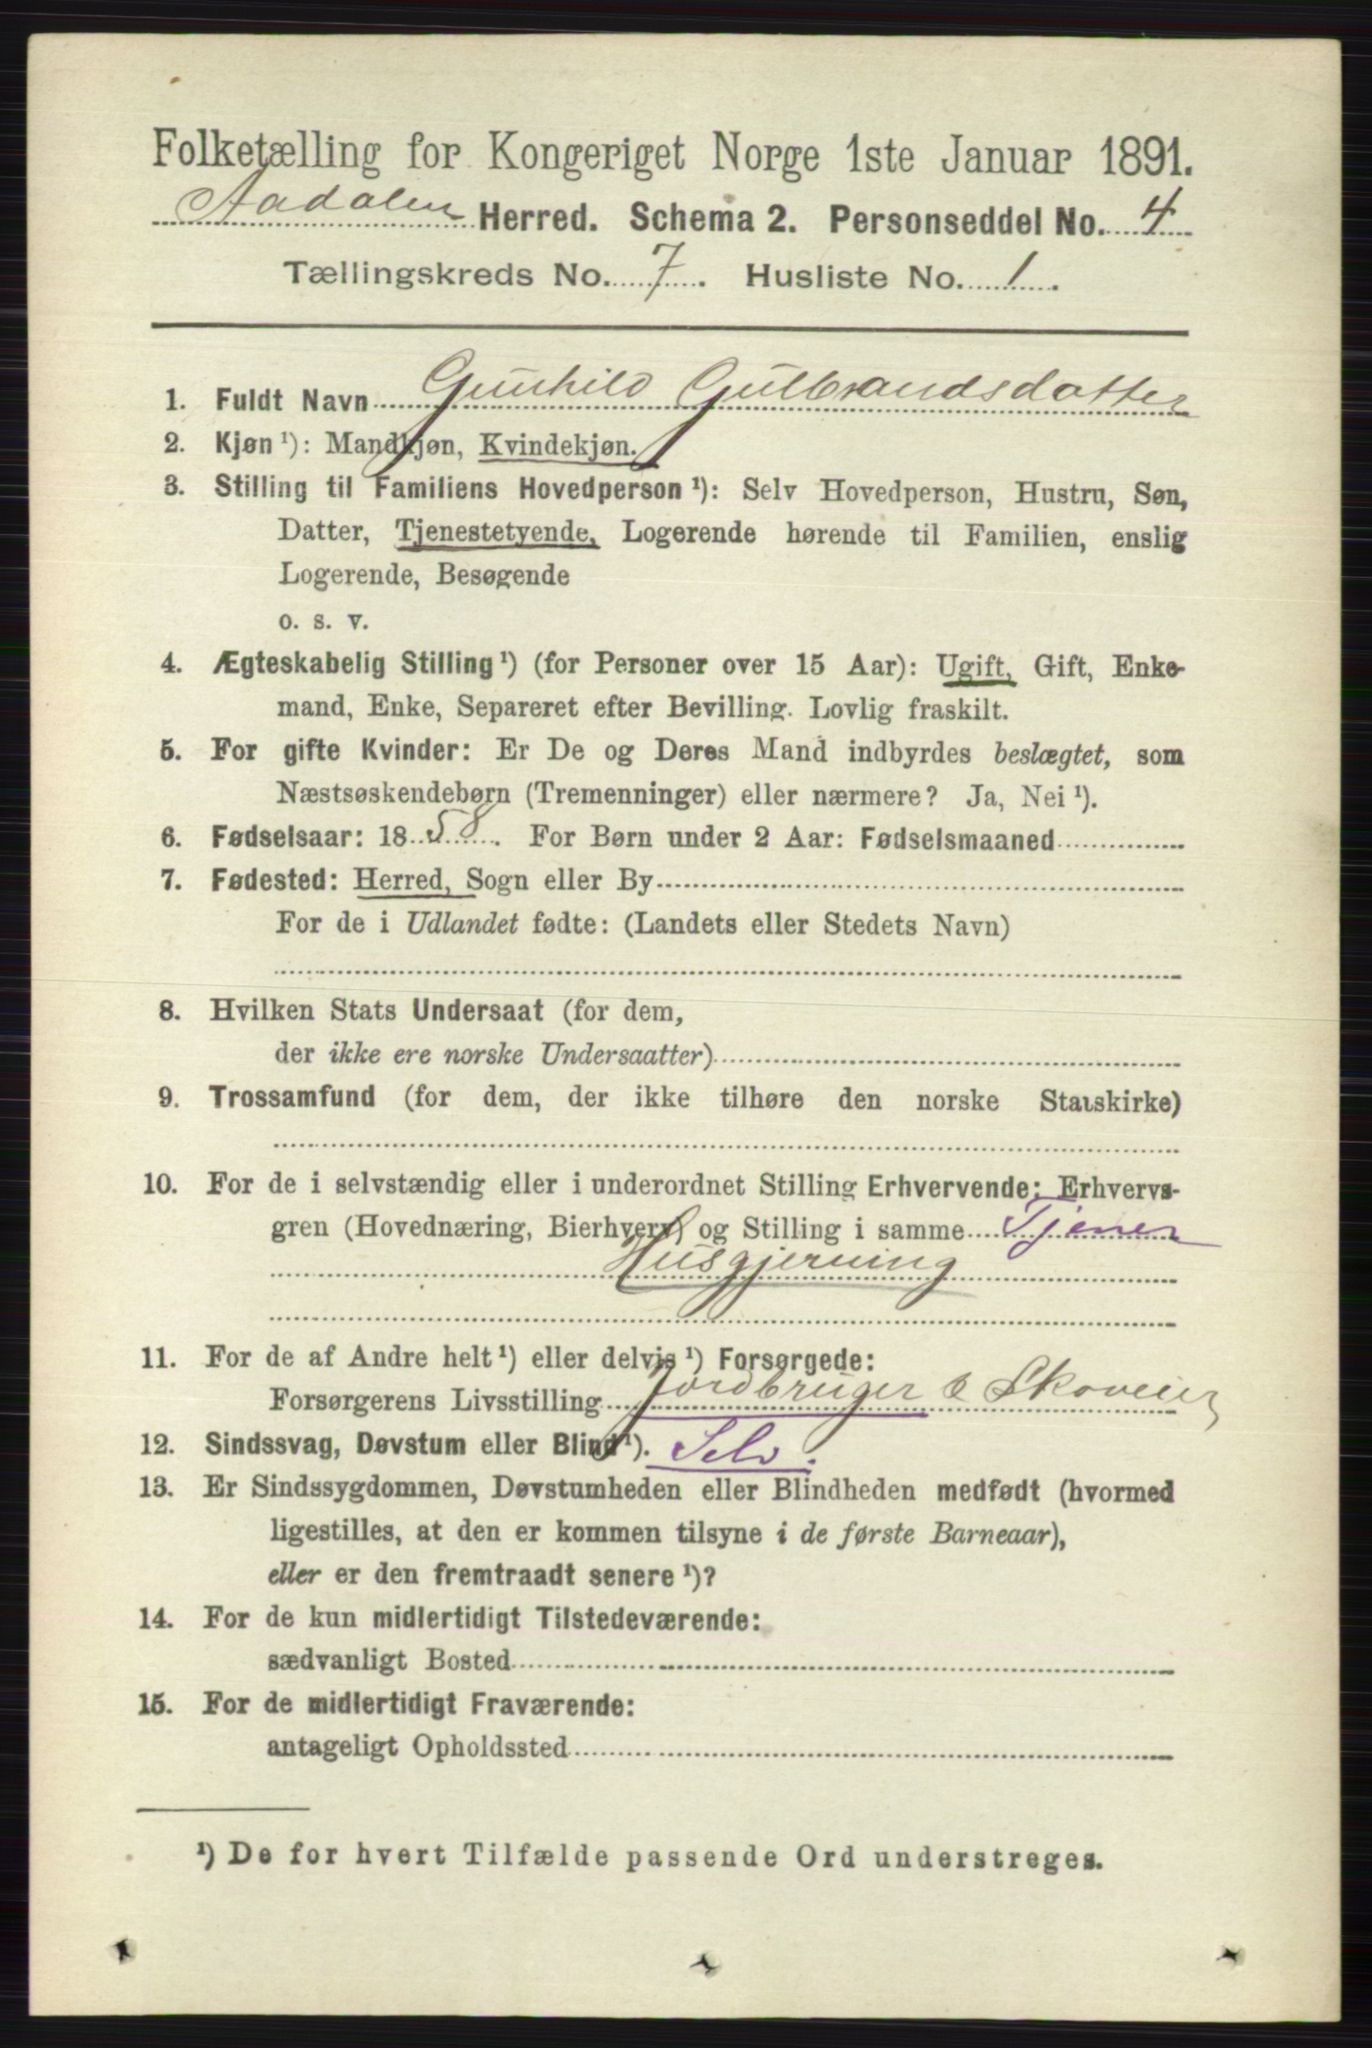 Folketælling for Kongeriget Norge 1ste Januar 1891.
Aadalen Herred. Schema 2. Personseddel No. 4
Tællingskreds No. 7. Husliste No. 1.
1. Fuldt Navn Gunhild Gulbrandsdatter
2. Kjøn ¹): Mandkjøn, Kvindekjøn.
3. Stilling til Familiens Hovedperson ¹): Selv Hovedperson, Hustru, Søn,
Datter, Tjenestetyende, Logerende hørende til Familien, enslig
Logerende, Besøgende
o. s. v.
4. Ægteskabelig Stilling ¹) (for Personer over 15 Aar): Ugift, Gift, Enke-
mand, Enke, Separeret efter Bevilling. Lovlig fraskilt.
5. For gifte Kvinder: Er De og Deres Mand indbyrdes beslægtet, som
Næstsøskendebørn (Tremenninger) eller nærmere? Ja, Nei ¹).
6. Fødselsaar: 1858. For Børn under 2 Aar: Fødselsmaaned
7. Fødested: Herred, Sogn eller By
For de i Udlandet fødte: (Landets eller Stedets Navn)
8. Hvilken Stats Undersaat (for dem,
der ikke ere norske Undersaatter)
9. Trossamfund (for dem, der ikke tilhøre den norske Statskirke)
10. For de i selvstændig eller i underordnet Stilling Erhvervende: Erhvervs-
gren (Hovednæring, Bierhverv) og Stilling i samme Tjener
Husgjerning
11. For de af Andre helt ¹) eller delvis ¹) Forsørgede:
Forsørgerens Livsstilling Jordbruger & Skoveier
12. Sindssvag, Døvstum eller Blind ¹). Selv.
13. Er Sindssygdommen, Døvstumheden eller Blindheden medfødt (hvormed
ligestilles, at den er kommen tilsyne i de første Barneaar),
eller er den fremtraadt senere ¹)?
14. For de kun midlertidigt Tilstedeværende:
sædvanligt Bosted
15. For de midlertidigt Fraværende:
antageligt Opholdssted
¹) De for hvert Tilfælde passende Ord understreges.